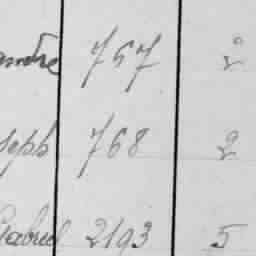 andre 757 2
seph 768 2
Gabriel 2193 5